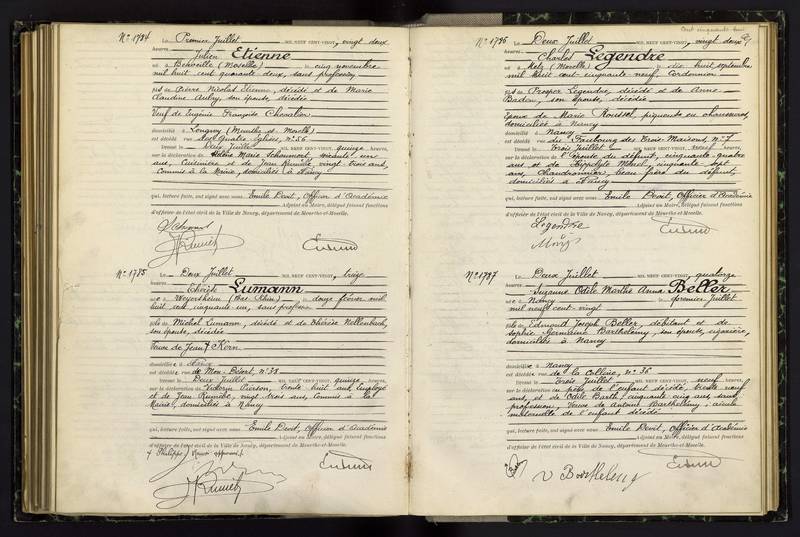 N° 1734 Le Premier Juillet MIL NEUF CENT-VINGT, vingt deux
heures
Julien Etienne
né à (Moselle) le cinq novembre
mil huit cent quarante deux, sans profession
fils de Pierre Nicolas Etienne, décédé et de Marie
Claudine Aubry, son épouse, décédée
Veuf de Eugénie Françoise Chevalier
domicilié à Longwy (Meurthe et Moselle)
est décédé rue des Quatre Eglises, n° 56
Dressé le Deux Juillet MIL NEUF CENT-VINGT, quinze heures,
sur la déclaration de Marie
ans, et de Jean vingt trois ans,
Commis à la Mairie, domiciliés à Nancy
qui, lecture faite, ont signé avec nous Emile Devit, Officier d'Académie
Adjoint au Maire, délégué faisant fonctions
d'officier de l'état civil de la Ville de Nancy, département de Meurthe-et-Moselle.
N° 1735 Le Deux Juillet MIL NEUF CENT-VINGT, treize
heures
Thérèse Lumann
née à Weyersheim (Bas Rhin) le douze février mil
huit cent cinquante un, sans profession
fille de Michel Lumann, décédé et de Thérèse
son épouse, décédée
Veuve de Jean Kern
domiciliée à Nancy
est décédée rue de Mon Désert, n° 38
Dressé le Deux Juillet MIL NEUF CENT-VINGT, quinze heures,
sur la déclaration de trente huit ans, Employé
et de Jean vingt trois ans, Commis à la
Mairie, domiciliés à Nancy
qui, lecture faite, ont signé avec nous Emile Devit, Officier d'Académie
Adjoint au Maire, délégué faisant fonctions
d'officier de l'état civil de la Ville de Nancy, département de Meurthe-et-Moselle.
N° 1736 Le Deux Juillet MIL NEUF CENT-VINGT, vingt deux
heures
Charles Legendre
né à Metz (Moselle) le dix huit septembre
mil huit cent cinquante neuf, Cordonnier
fils de Prosper Legendre, décédé et de Anne
Badou, son épouse, décédée
Epoux de Marie Roussel, piqueuse en chaussures,
domiciliés à Nancy
domicilié à Nancy
est décédé rue du Faubourg des Trois Maisons, n° 7
Dressé le Trois Juillet MIL NEUF CENT-VINGT, neuf heures,
sur la déclaration de l'Epouse du défunt, cinquante quatre
ans et de cinquante sept
ans, Chaudronnier, beau frère du défunt,
domiciliés à Nancy
qui, lecture faite, ont signé avec nous Emile Devit, Officier d'Académie
Adjoint au Maire, délégué faisant fonctions
d'officier de l'état civil de la Ville de Nancy, département de Meurthe-et-Moselle.
Legendre
N° 1737 Le Deux Juillet MIL NEUF CENT-VINGT, quatorze
heures
Suzanne Odile Marthe Anna Beller
née à Nancy le premier Juillet
mil neuf cent vingt
fille de Edmond Joseph Beller, débitant et de
Sophie Germaine Barthélémy, son épouse, cigarière,
domiciliés à Nancy
domiciliée à Nancy
est décédée rue de la Colline, n° 36
Dressé le Trois Juillet MIL NEUF CENT-VINGT, neuf heures,
sur la déclaration du père de l'enfant décédé, trente neuf
ans, et de Odile Barth, cinquante cinq ans, sans
profession, Veuve de Antoine Barthélémy, aïeule
maternelle de l'enfant décédé
qui, lecture faite, ont signé avec nous Emile Devit, Officier d'Académie
Adjoint au Maire, délégué faisant fonctions
d'officier de l'état civil de la Ville de Nancy, département de Meurthe-et-Moselle.